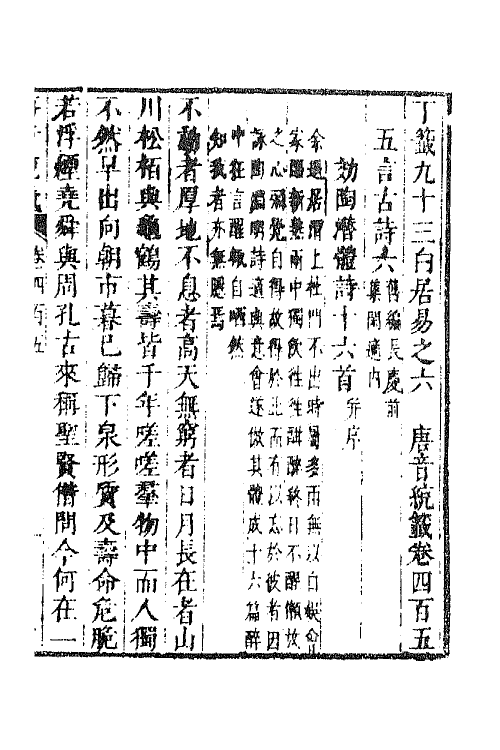 丁籤九十三白居易之六　唐音統籤卷四百五
五言古詩六
舊編長慶前
集閒適內
効陶潛體詩十六首并序
余退居渭上杜門不出時屬多雨無以自娛會
家醞新熟雨中獨飲往往酣醉終日不醒懶放
之心彌覺自得故得於此而有以忘於彼者因
詠陶淵明詩適與意會遂倣其體成十六篇醉
中狂言醒輒自哂然
知我者亦無隱焉
不動者厚地不息者高天無窮者日月長在者山
川松栢與龜鶴其壽皆千年嗟嗟羣物中而人獨
不然早出向朝市暮已歸下泉形質及壽命危脆
若浮煙堯舜與周孔古來稱聖賢借問今何在一
卷四百五